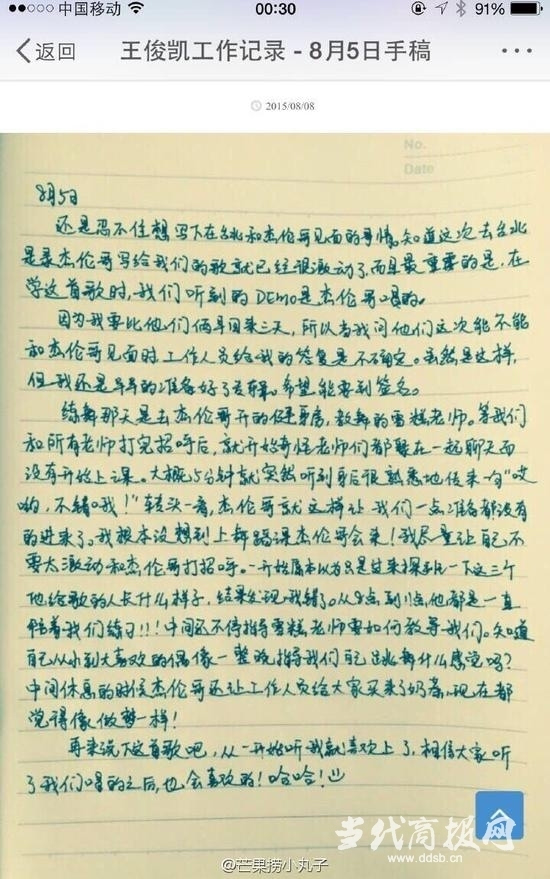 中国移动 00:30 91%
返回 王俊凯工作记录 - 8月5日手稿 ...
2015/08/08
No.
Date
8月5日
还是忍不住想写下在台北和杰伦哥见面的事情。知道这次去台北
是录杰伦哥写给我们的歌就已经很激动了,而且最重要的是,在
学这首歌时,我们听到的DEMO是杰伦哥唱的。
因为我要比他们俩早回来三天,所以当我问他们这次能不能
和杰伦哥见面时,工作人员给我的答复是不确定。虽然是这样,
但我还是早早的准备好了专辑。希望能要到签名。
练舞那天是去杰伦哥开的健身房,教舞的雪糕老师。等我们
和所有老师打完招呼后,就开始奇怪老师们都躲在一起聊天而
没有开始上课。大概5分钟就突然听到身后很熟悉地传来一句"哎
哟,不错哦!"转头一看,杰伦哥就这样让我们一点准备都没有
的进来了。我根本没想到上舞蹈课杰伦哥会来!我尽量让自己不
要太激动和杰伦哥打招呼。一开始原本以为只是过来探班一下这三个
他给歌的人长什么样子,结果发现我错了。从8点到11点他都是一直
陪着我们练习!!!中间还不停指导雪糕老师要如何教导我们。知道
自己从小到大喜欢的偶像一整晚指导我们自己跳舞什么感觉吗?
中间休息的时候杰伦哥还让工作人员给大家买来了奶茶,现在都
觉得像做梦一样!
再来说下这首歌吧,从一开始听我就喜欢上了,相信大家听
了我们唱的之后,也会喜欢的!哈哈!
当代商报网
www.ddsb.cn
@芒果捞小丸子